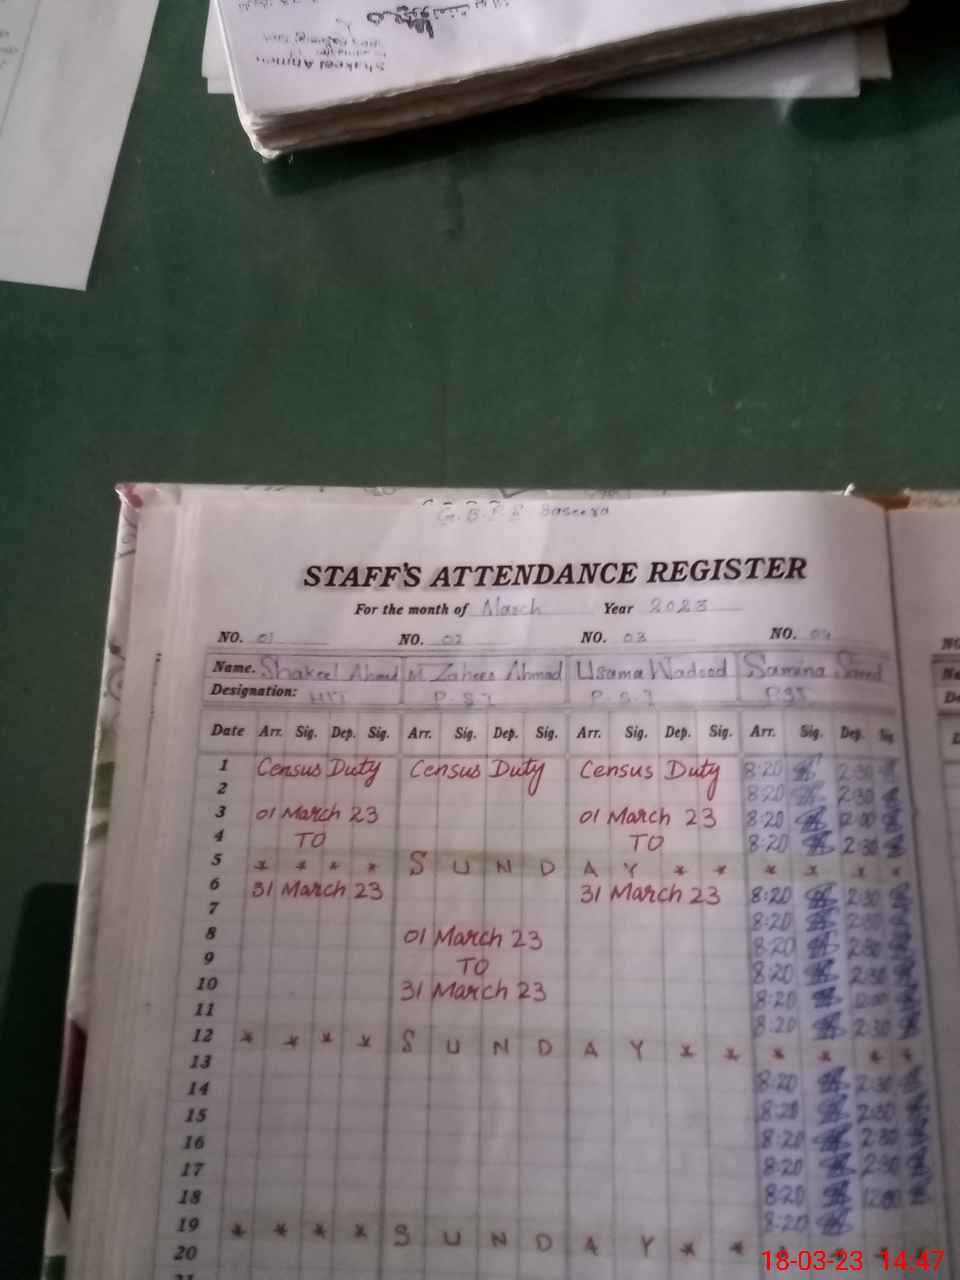 Shakeel Ahmed
G.B.P.S Baseera
STAFF'S ATTENDANCE REGISTER
For the month of March Year 2023
NO. 01 NO. 02 NO. 03 NO. 04
Name. Shakeel Ahmed M Zaheer Ahmad Usama Wadood Samina Saeed
Designation: P.S.T P.S.T PST
Date Arr. Sig. Dep. Sig. Arr. Sig. Dep. Sig. Arr. Sig. Dep. Sig. Arr. Sig. Dep. Sig
1 Census Duty Census Duty Census Duty 8:20 2:30
2 8:20 2:30
3 01 March 23 01 March 23 8:20 12:00
4 TO TO 8:20 2:30
5 * * * * S U N D A Y * * * * * *
6 31 March 23 31 March 23 8:20 2:30
7 8:20 2:30
8 01 March 23 8:20 2:30
9 TO 8:20 2:30
10 31 March 23 8:20 12:00
11 8:20 2:30
12 * * * * S U N D A Y * * * * * *
13 8:20 2:30
14 8:20 2:30
15 8:20 2:30
16 8:20 2:30
17 8:20 12:00
18 8:20
19 * * * * S U N D A Y * *
20
21
18-03-23 14:47